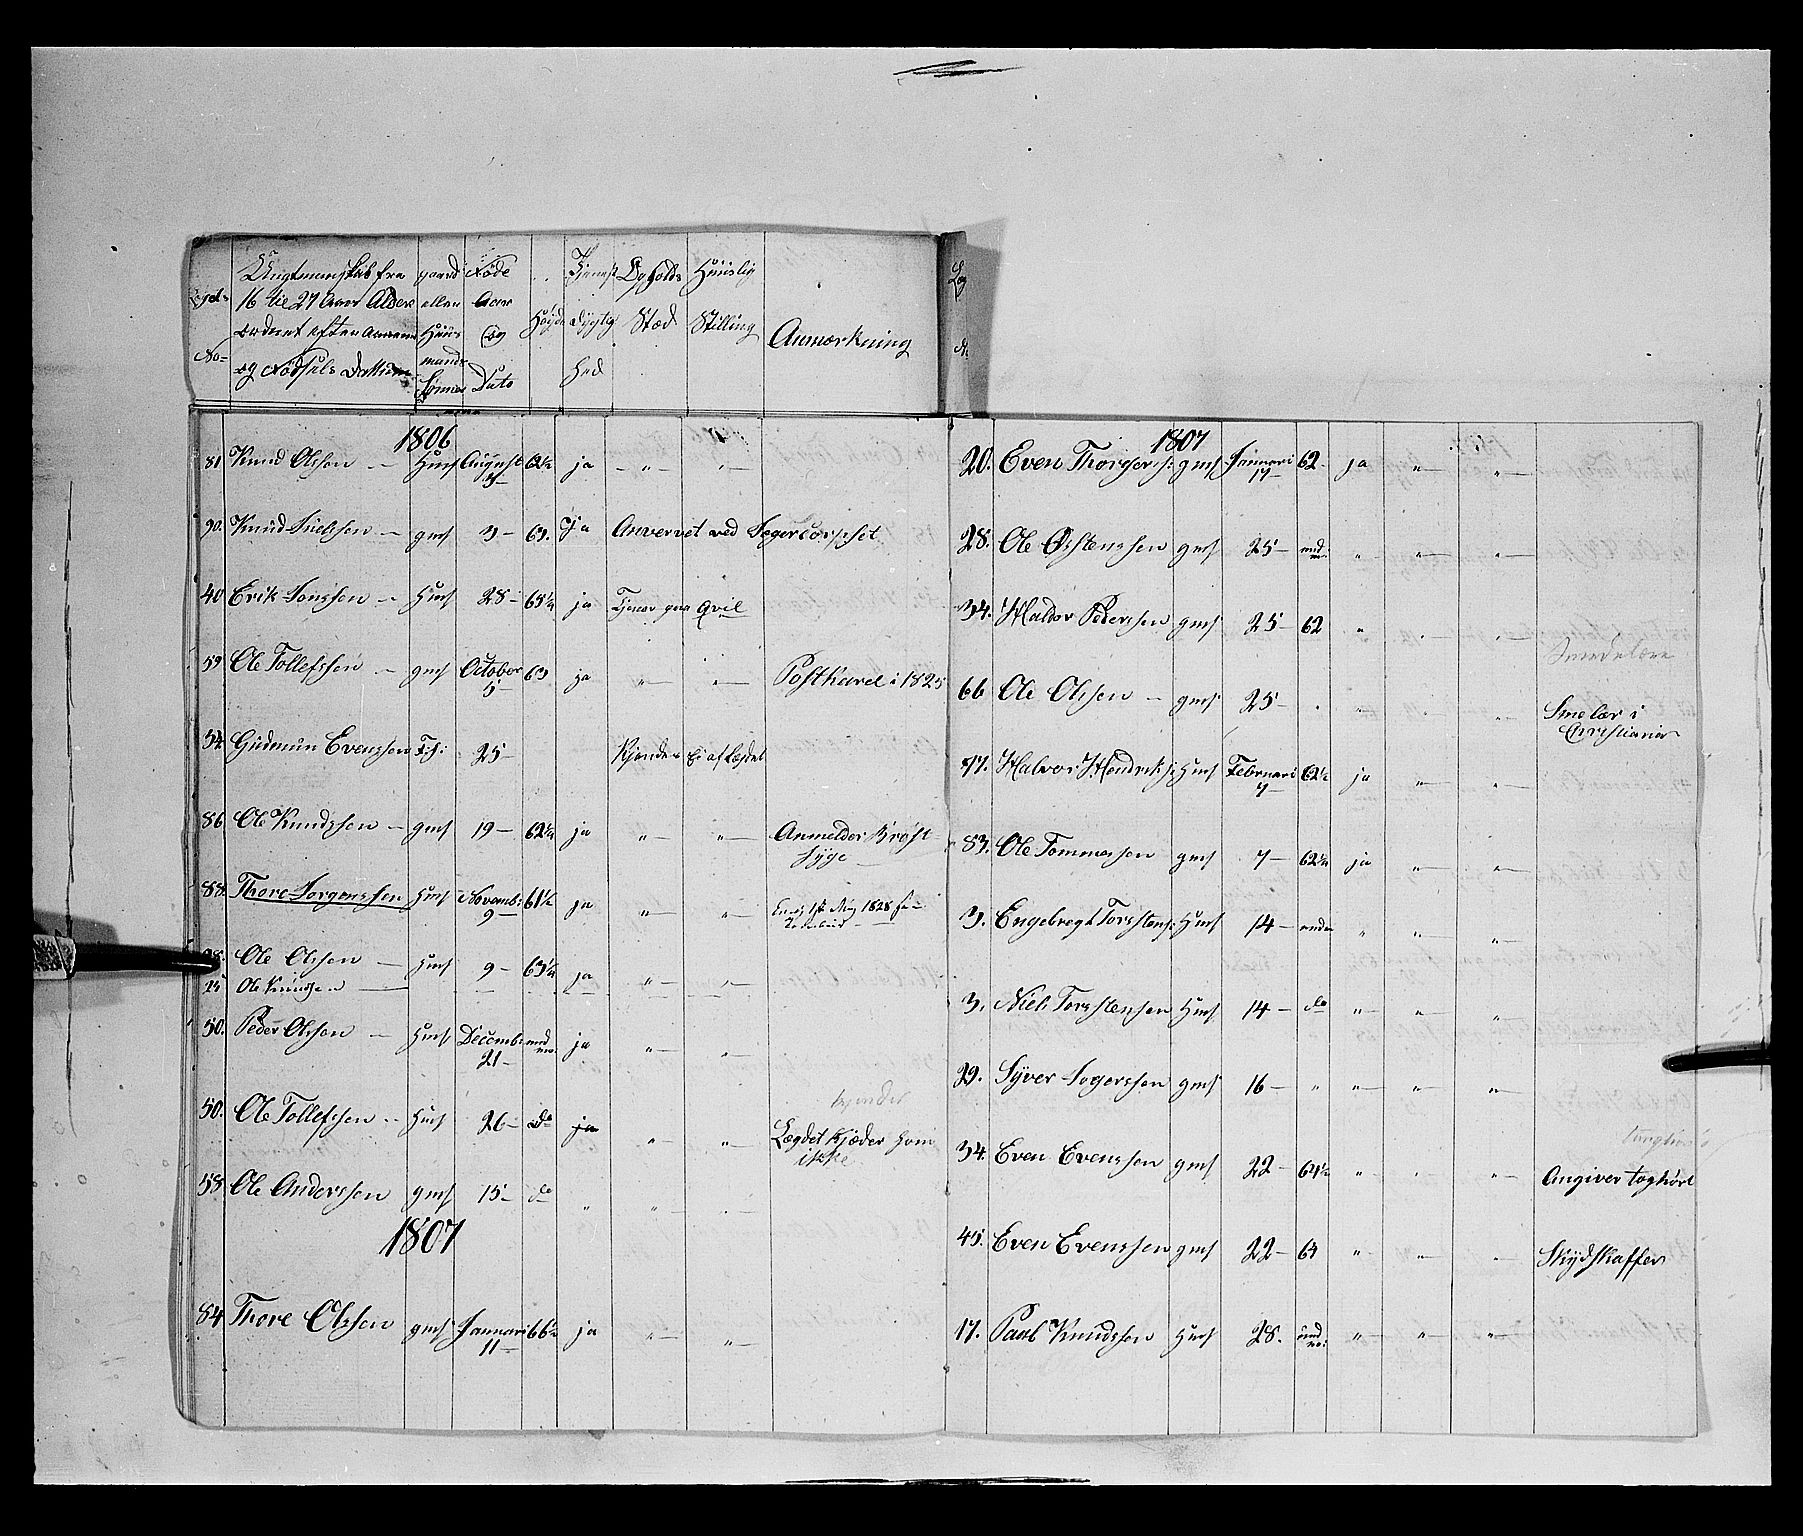 Ungtmandskab fra
16 til 27 Aars Alder
ordnet efter Aarene
og Fødsels Dattum
No
gaard
eller
Huus
mands
Sønner
Føde
Aar
og
Dato
Høyde
Tjenst
dygtig
hed
Opholds
Stæd
Huuslig
Stilling
Anmærkning
1806
81 Knud Olssen — Hms August 3— 62½ ja — „ — „ —
90. Knud Nielssen — gms 3— 63. ja Anvervet ved Jegercorpset
40 Erik Jonssen — Hms 28— 65¼ ja Tjener paa Qvil
59 Ole Tollefssen — gms October 5— 63 ja „ — „ — Postkarel i 1825
54 Gudmun Evenssen 25— Kjendes Ei af Lægdet
86 Ole Knudssen — gms 19— 62¼ ja „ „ — Anmelder Brøst
Syge
88. Thore Jorgenssen Hms Novemb: 9— 61½ ja „ „ — 1828
28. Ole Olssen — Hms 9— 63¼ ja „ — „ —
25 Ole Knudsen —
50. Peder Olssen — Hms Decemb: 21— und m: ja „ — „ —
50. Ole Tollefssen — Hms 26— do ja „ — „ — Lægdet Kjæder ham
ikke
58 Ole Anderssen gms 15— do „ „ — „ —
1807
84 Thore Olssen gms Januari 11— 66½ ja „ — „ —
Læg
N:
1807
20. Even Thorgerss: gms Januari 17— 62. ja „ — „ —
28. Ole Østenssen gms 25— und m: „ „ — „ —
34. Haldor Pederssen gms 25— 62 „ „ — „ —
Smedelære
66 Ole Olssen — gms 25— „ „ „ „ — Smelær i
Christiania
77. Halvor Hendriks: Hms Februari 7— 62½ ja „ — „ —
83. Ole Tommessen gms 7— 62¼ ja „ — „ —
3. Engebregt Torstens: Hms 14— under „ „ — „ —
3. Niels Torsstenssen Hms 14— do „ — „ — „ —
29. Syver Jogerssen gms 16— „ „ — „ — „ —
34. Even Evenssen gms 22— 64½ „ „ „ — Angiver toghørt
45. Even Evenssen gms 22— 64 „ — „ — „ — Skydskaffer
17. Paul Knudssen Hms 28. und m: „ — „ — „ —